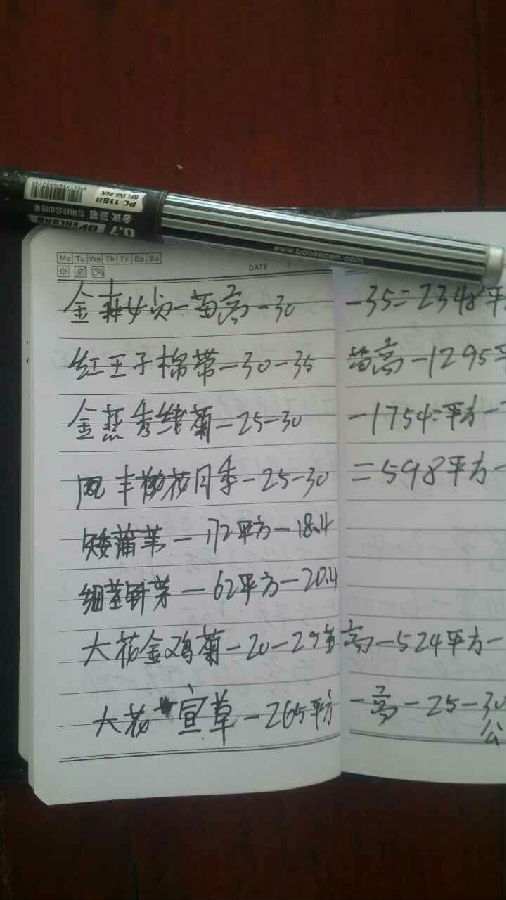 PC 1158
0.7
www.baokepen.com
Mo Tu We Th Fr Sa Su
DATE
金森女贞-苗高-30-35=2348平
红王子棉带-30-35苗高-1295平
金焰秀绣菊-25-30-1754=平方-
丰花月季-25-30=598平方-
矮蒲苇-172平方-18.4
细茎针茅-62平方-20.4
大花金鸡菊-20-29苗高-524平方-
大花宣草-265平方-高-25-30
公